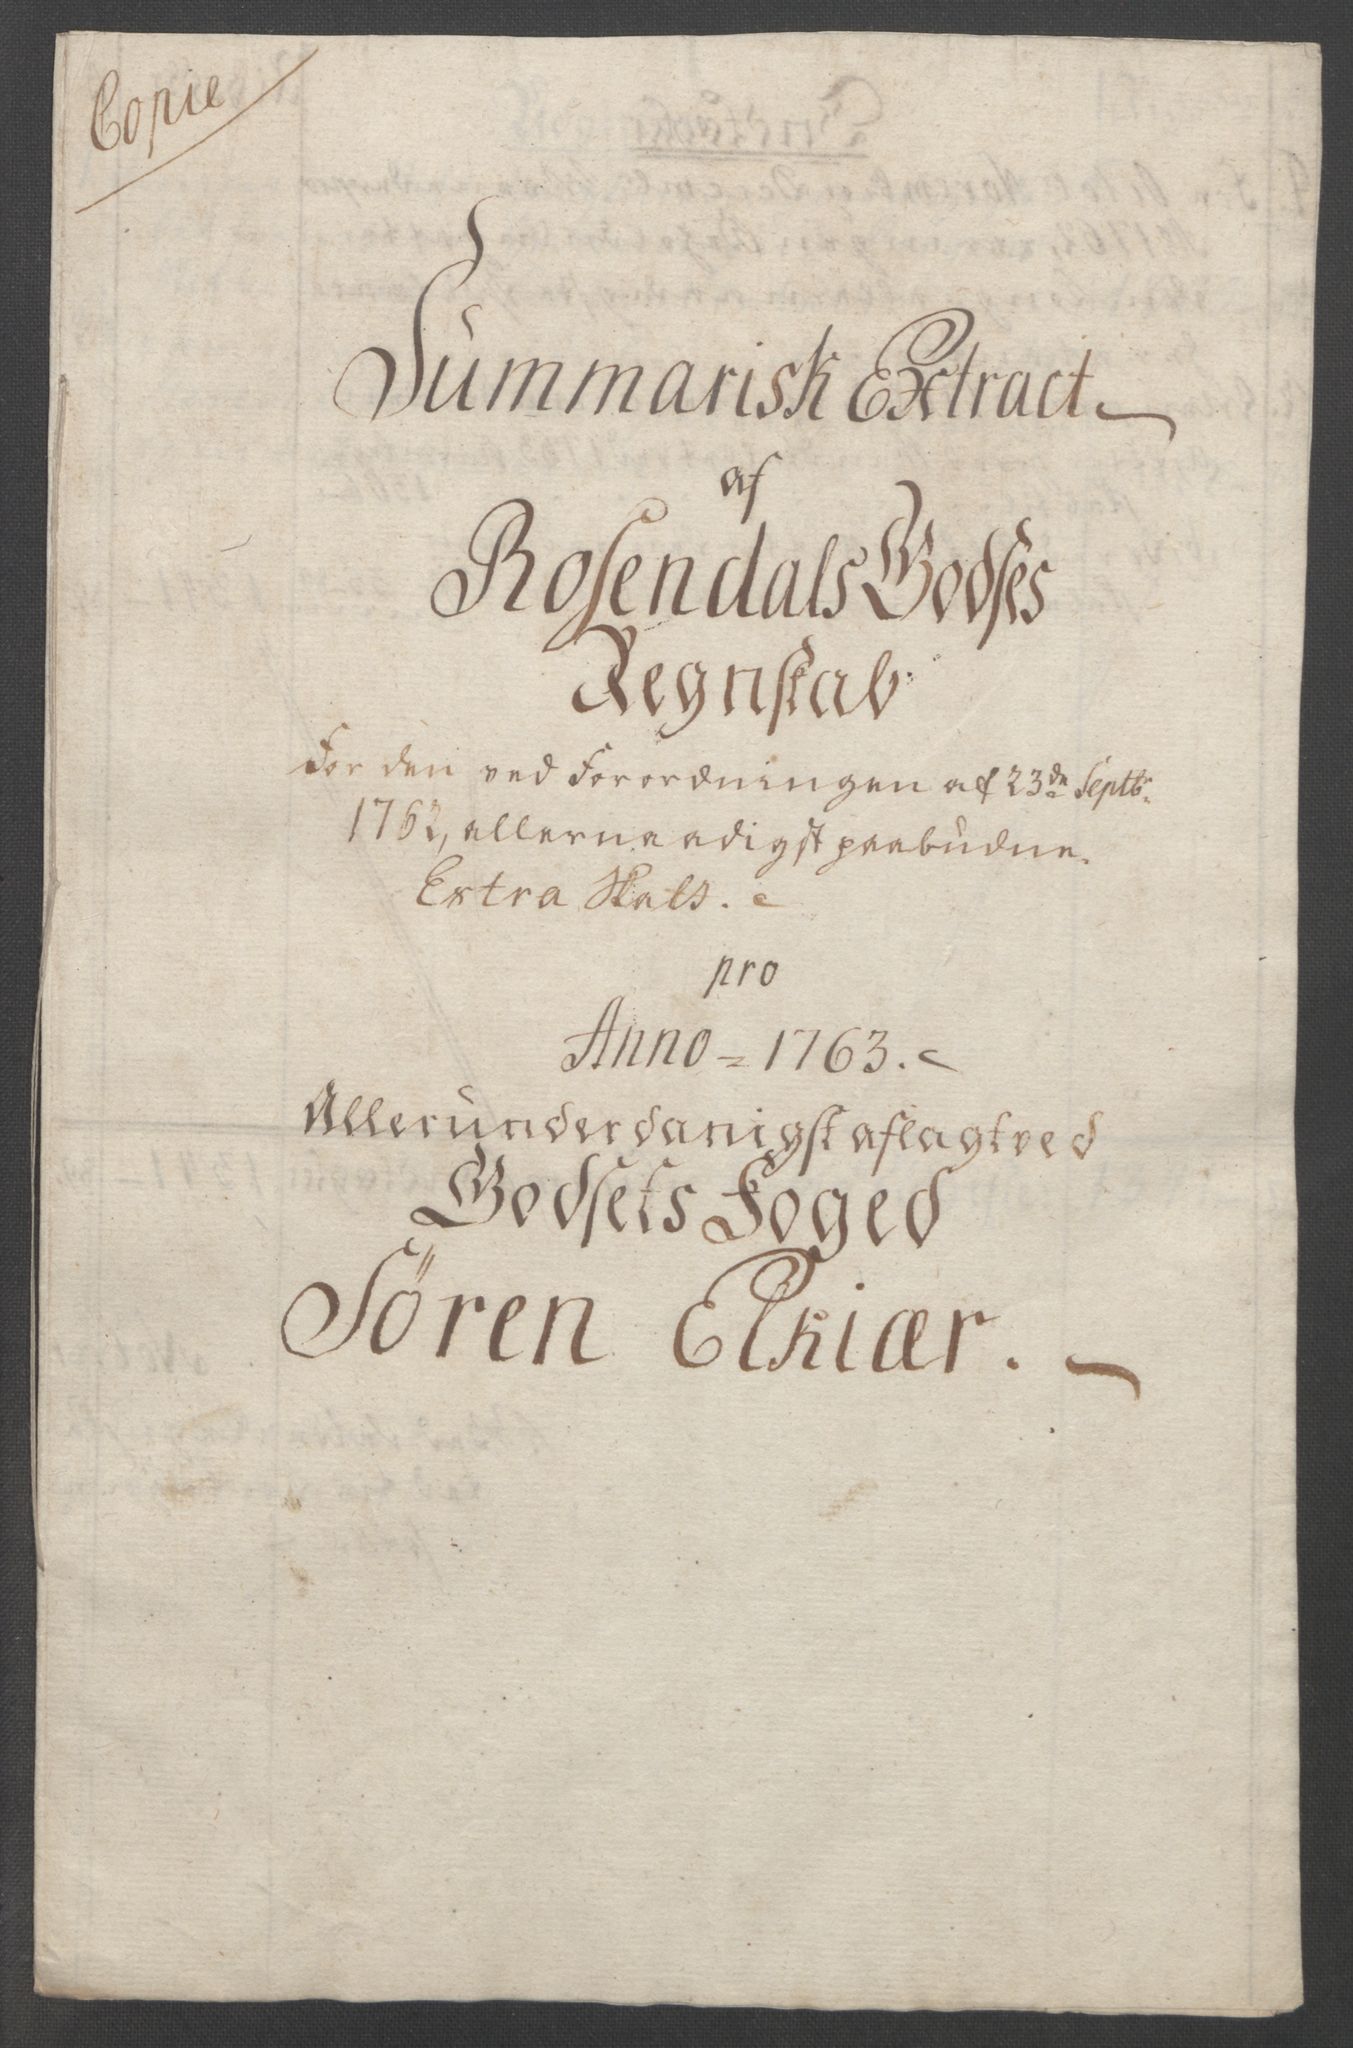 Copie
Summarisk Extract
af
Rosendals Godses
Regnskab
For den ved Forordningen af 23de Septbr.
1762, allernaadigst paabudne
Extra Skatt.
pro
Anno = 1763.
Allerunderdanigst aflagt ved
Godsets Foged
Sören Elkiær.